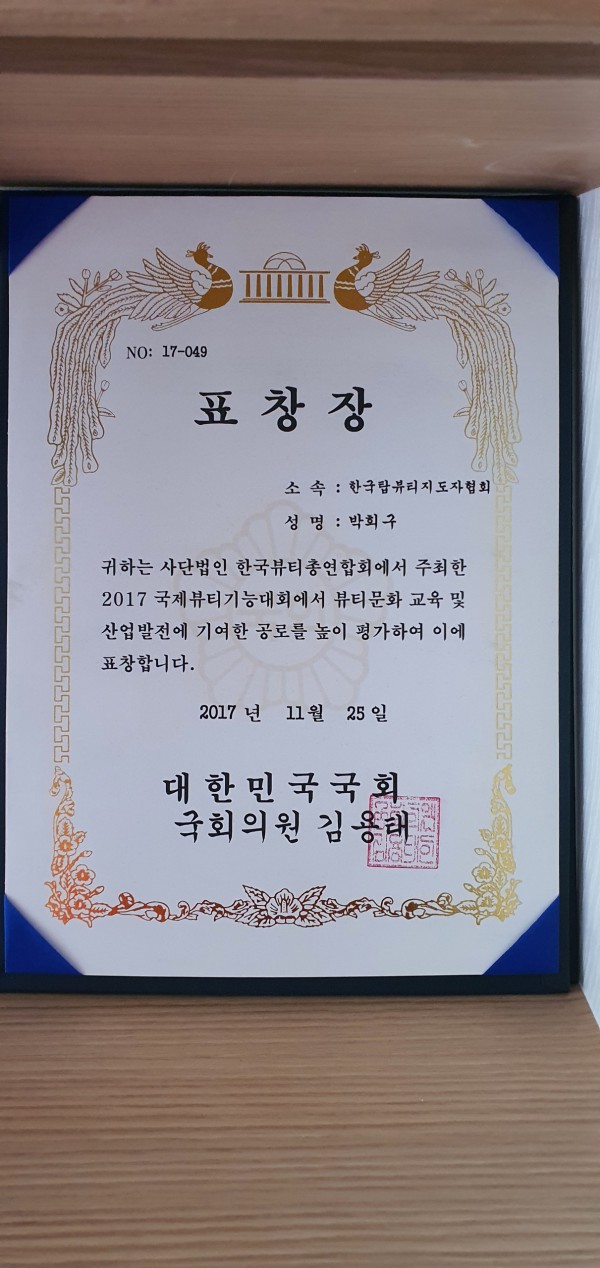 NO: 17-049
표 창 장
소 속 : 한국탑뷰티지도자협회
성 명 : 박희구
귀하는 사단법인 한국뷰티총연합회에서 주최한
2017 국제뷰티기능대회에서 뷰티문화 교육 및
산업발전에 기여한 공로를 높이 평가하여 이에
표창합니다.
2017 년 11월 25일
대 한 민 국 국 회
국회의원 김용태